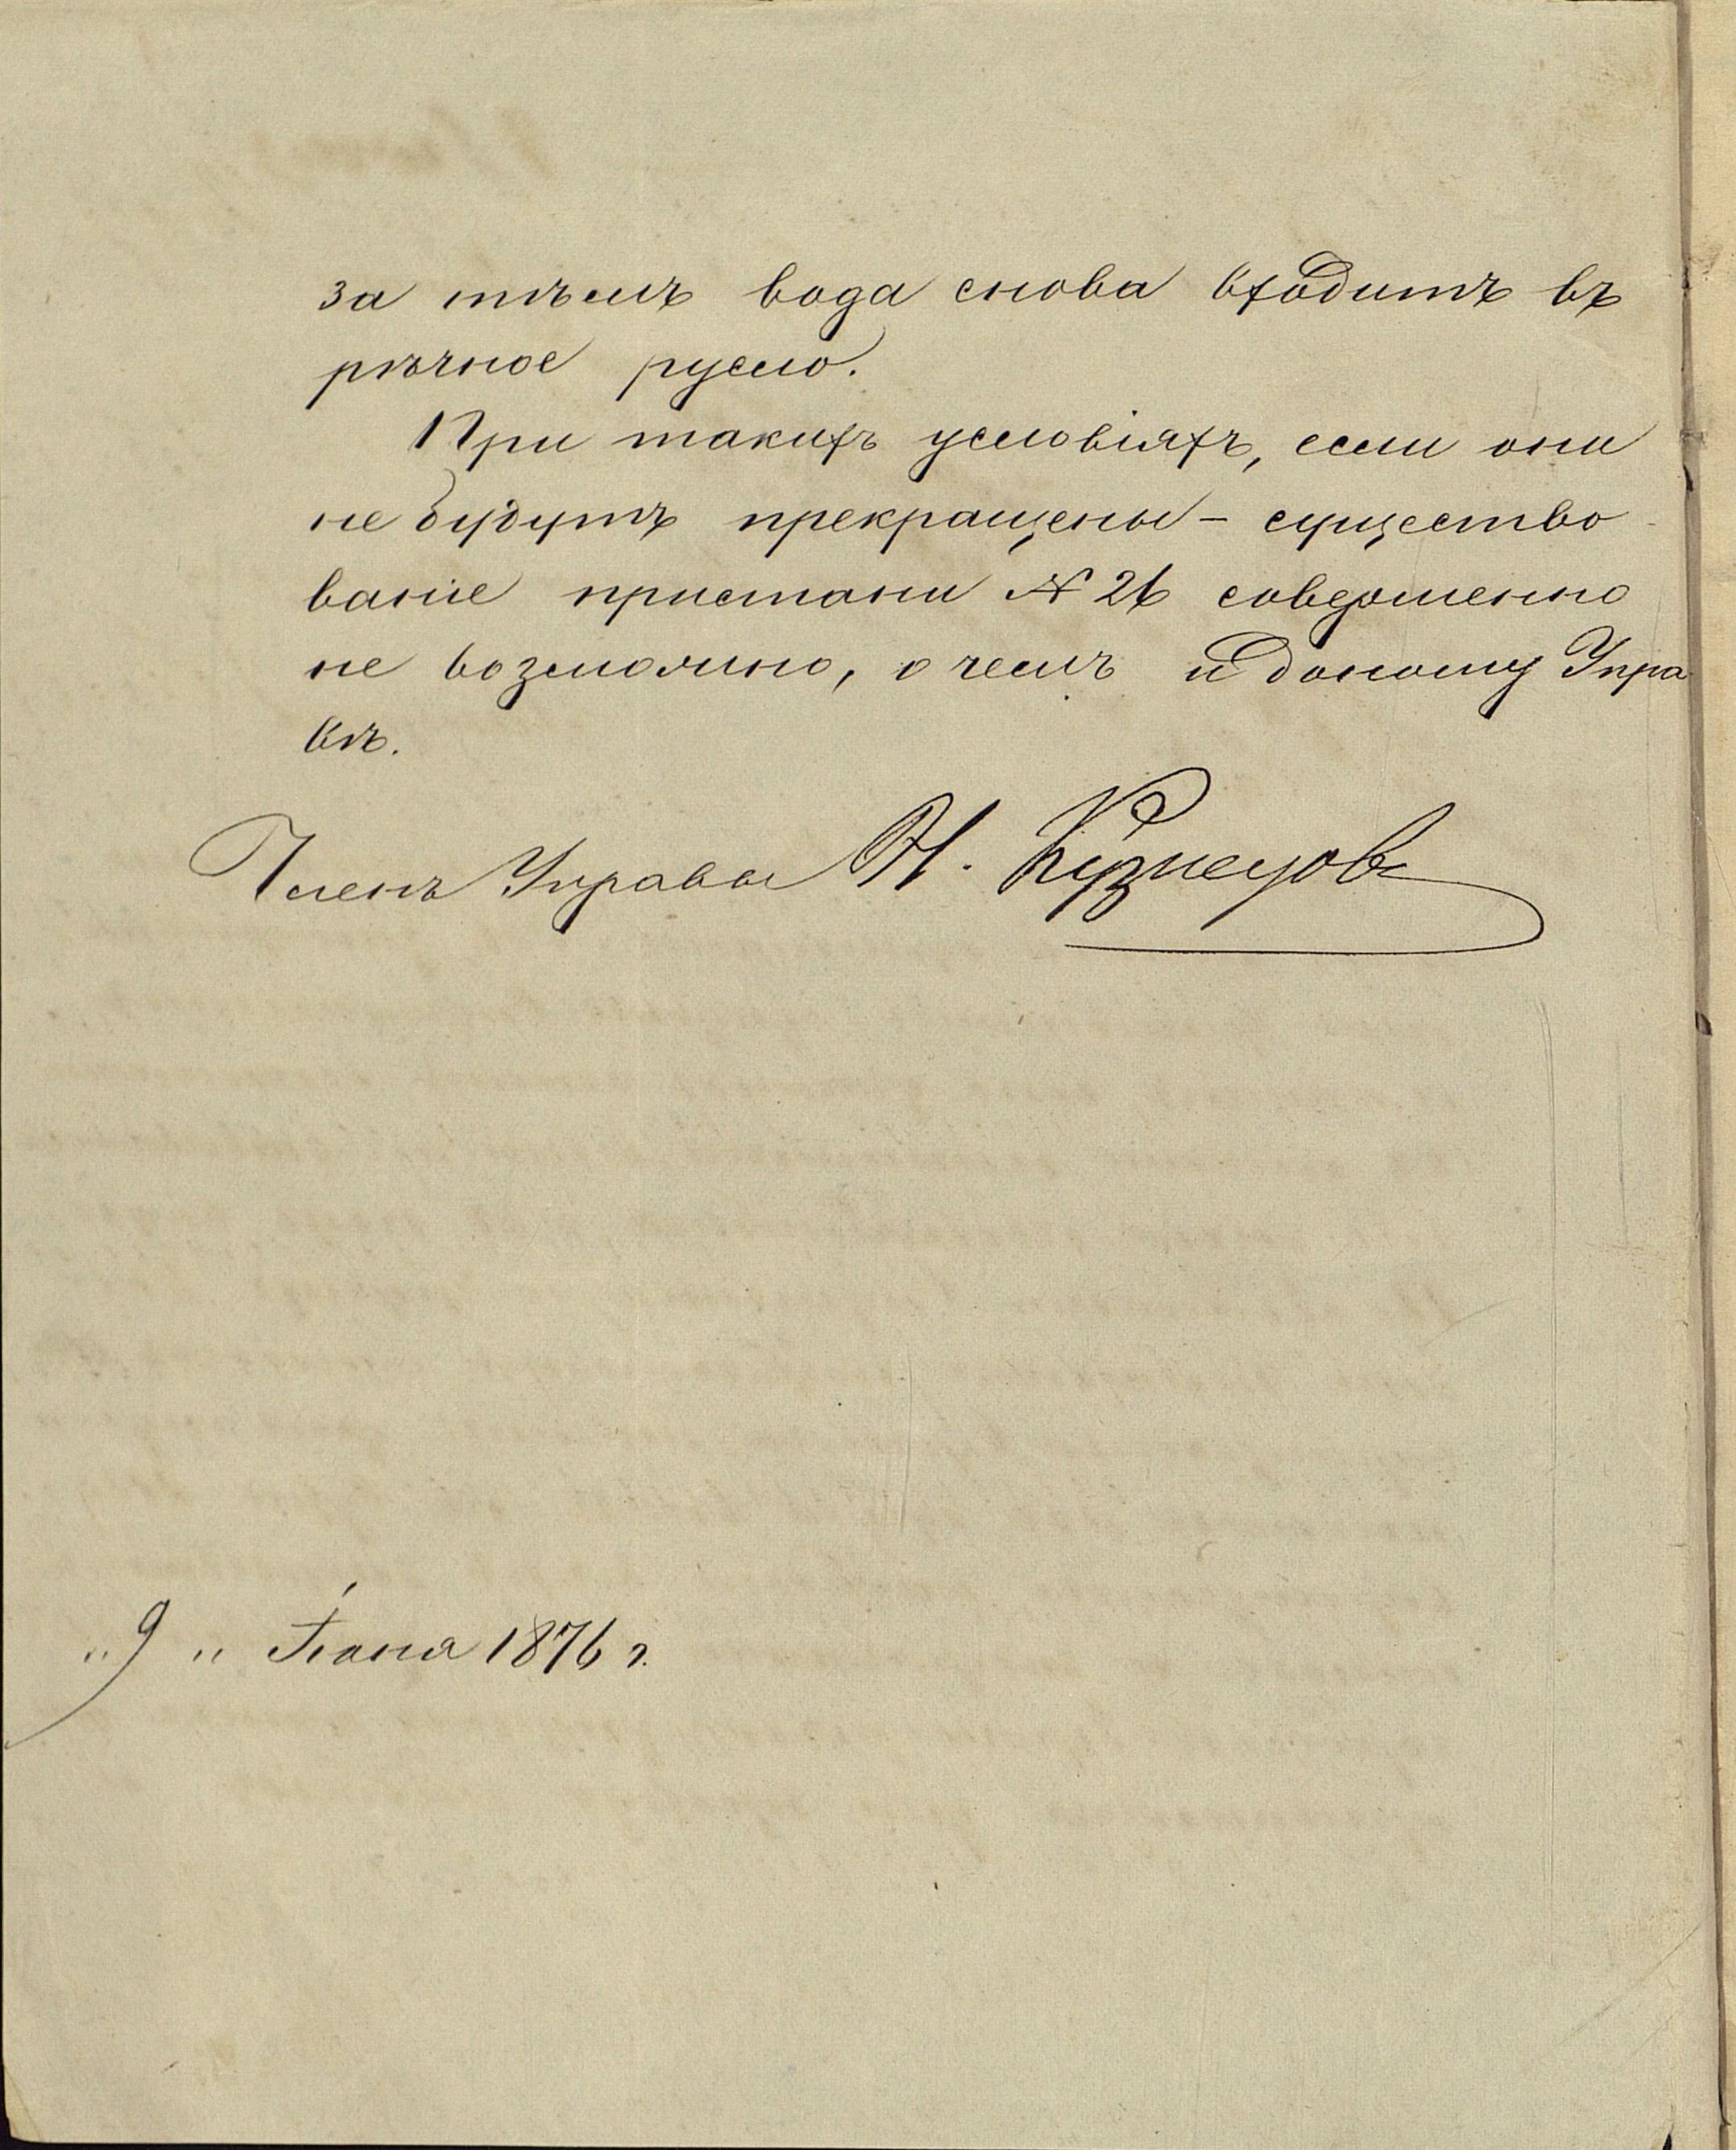 за тѣмъ вода снова входитъ въ
рѣчное русло.
При такихъ условіяхъ, если они
не будутъ прекращены - существо
ваніе пристани № 26 совершенно
не возможно, о чемъ и доношу Упра
вѣ.
Членъ Управы Н. Кузнецовъ
„9" Іюня 1876 г.